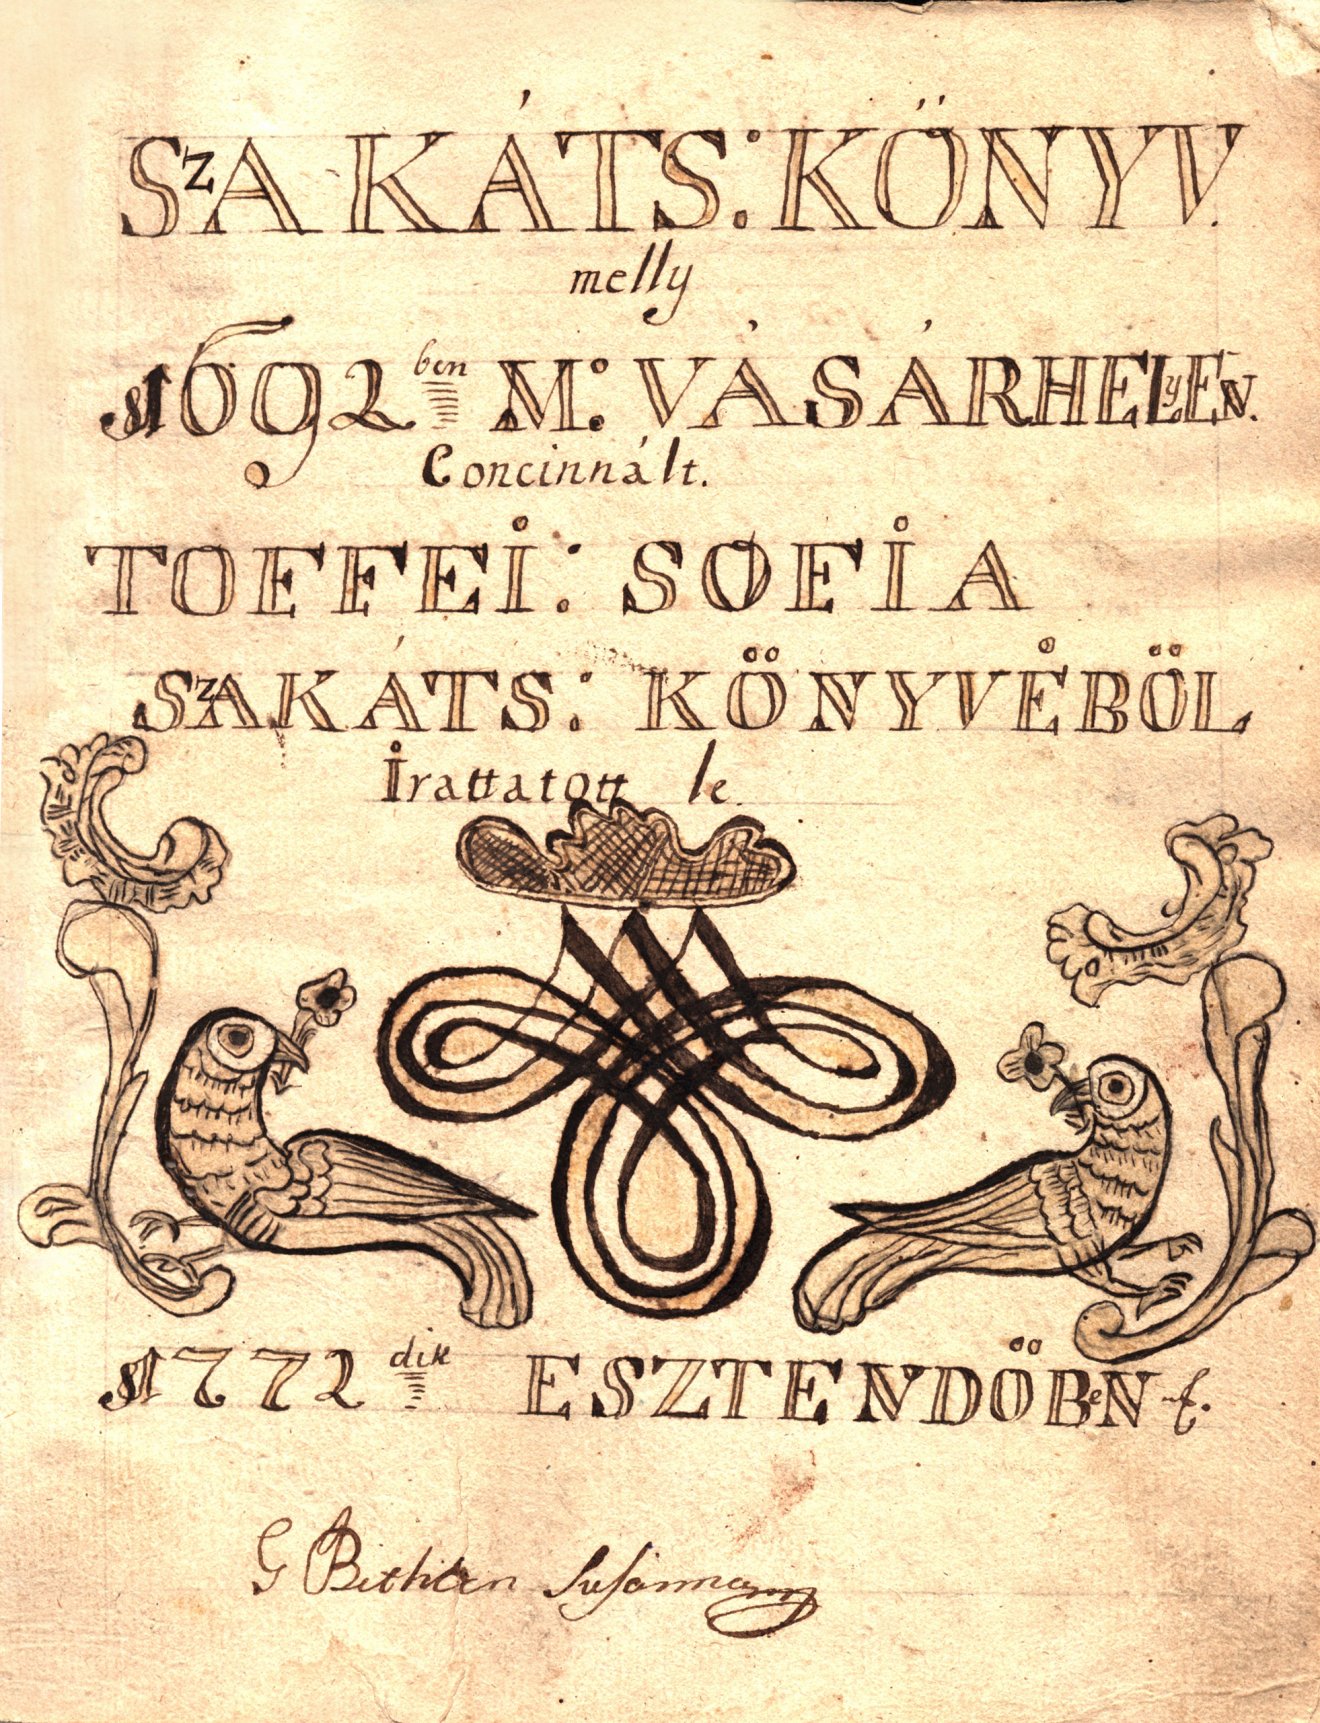 SzAKÁTS: KÖNYV.
melly
1692 ben M: VÁSÁRHELyEN.
Concinnált.
TOFFEI: SOFIA
SzAKÁTS: KÖNYVÉBÖL
Irattatott le.
1772 dik ESZTENDÖBeN
G Bethlen Susánna